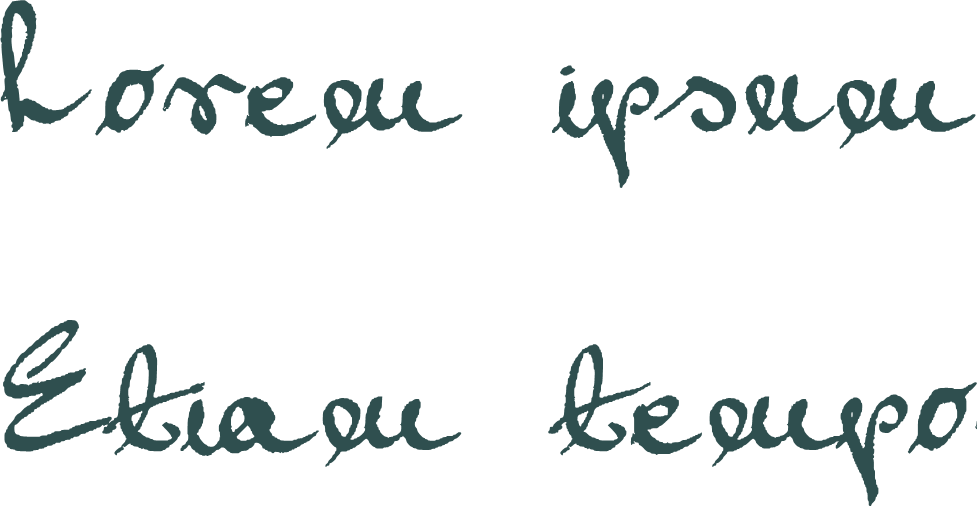 Lorem ipsum
Etiam tempo